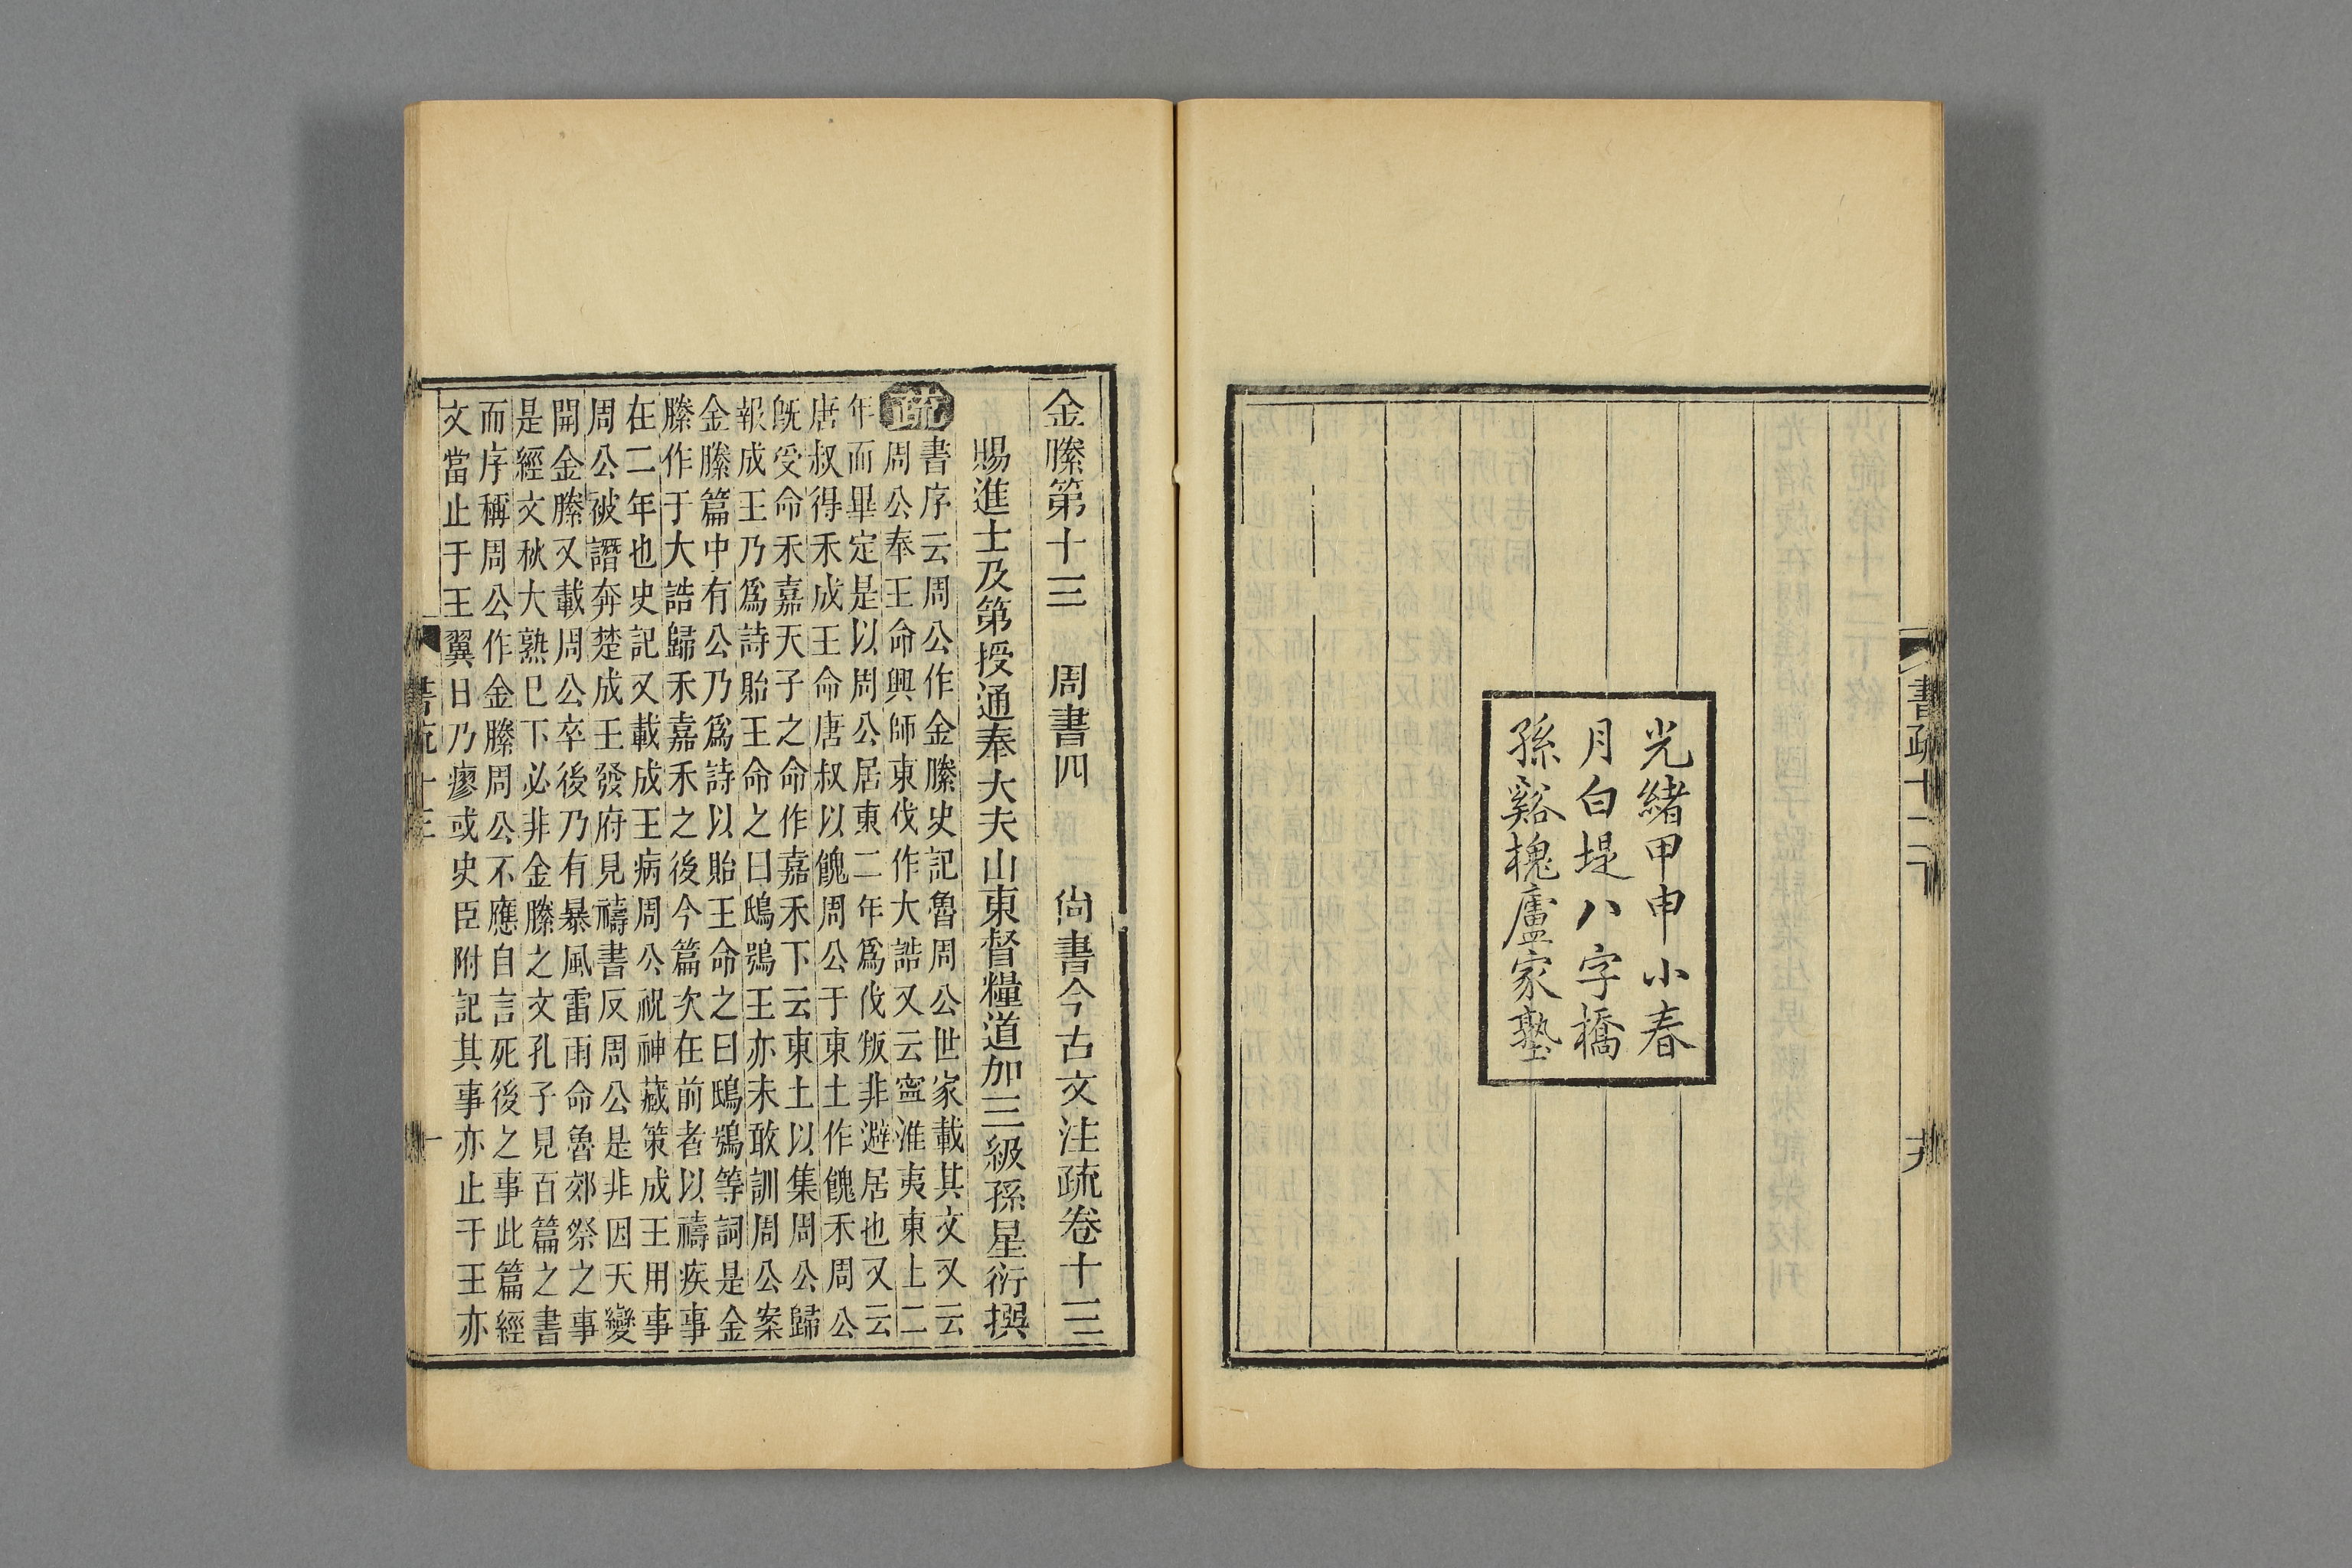 書疏十二下
光緒甲申小春
月白堤八字橋
孫谿槐廬家塾
金縢第十三 周書四 尚書今古文注疏卷十三
賜進士及第授通奉大夫山東督糧道加三級孫星衍撰
疏
書序云周公作金縢史記魯周公世家載其文又云
周公奉王命興師東伐作大誥又云寧淮夷東土二
年而畢定是以周公居東二年爲伐叛非避居也又云
唐叔得禾成王命唐叔以餽周公于東土作餽禾周公
旣受命禾嘉天子之命作嘉禾下云東土以集周公歸
報成王乃爲詩貽王命之曰鴟鴞王亦未敢訓周公案
金縢篇中有公乃爲詩以貽王命之曰鴟鴞等詞是金
縢作于大誥歸禾嘉禾之後今篇次在前者以禱疾事
在二年也史記又載成王病周公祝神藏策成王用事
周公被譖奔楚成王發府見禱書反周公是非因天變
開金縢又載周公卒後乃有暴風雷雨命魯郊祭之事
是經文秋大熟已下必非金縢之文孔子見百篇之書
而序稱周公作金縢周公不應自言死後之事此篇經
文當止于王翼日乃瘳或史臣附記其事亦止于王亦
書疏十三 一